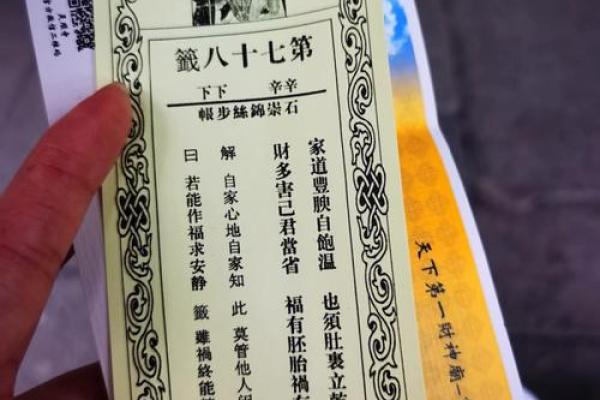 第七十八籤
辛辛 下下
石崇錦絲步帳
家道豐腴自飽温 也須肚裏立
財多害己君當省 福有胚胎禍
解 自家心地自家知 此 莫管他人
曰 若能作福求安静 籤 雖禍終能
天下第一財神廟